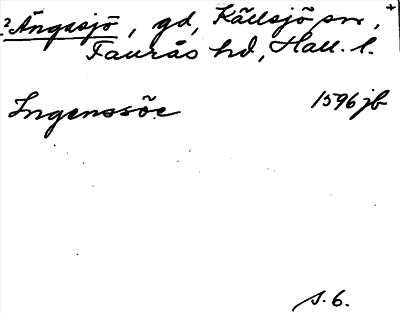 ? Ängasjö, gd, Källsjö sn, +
Faurås hd, Hall. l.
Ingenssöe 1596 jb
s. 6.